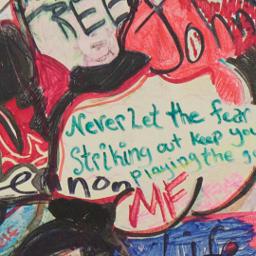 REE
John
Never Let the fear
Striking out keep you
Playing the g
Lennon
ME
Life